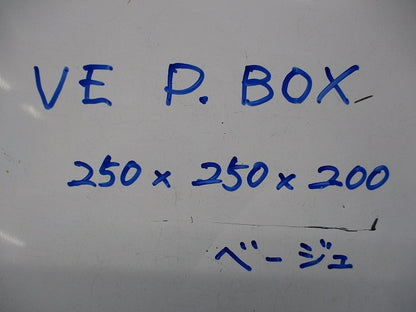 VE P. BOX
250 x 250 x 200
ベージュ